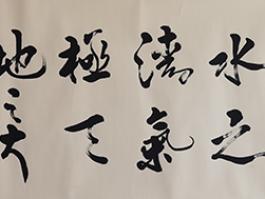 水之
清氣
極天
地之大